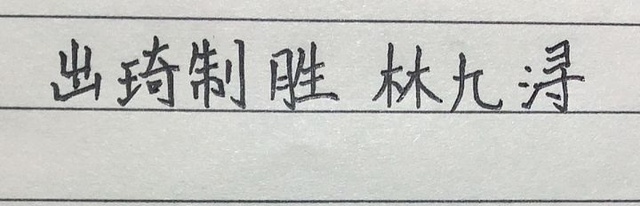 出琦制胜 林九浔